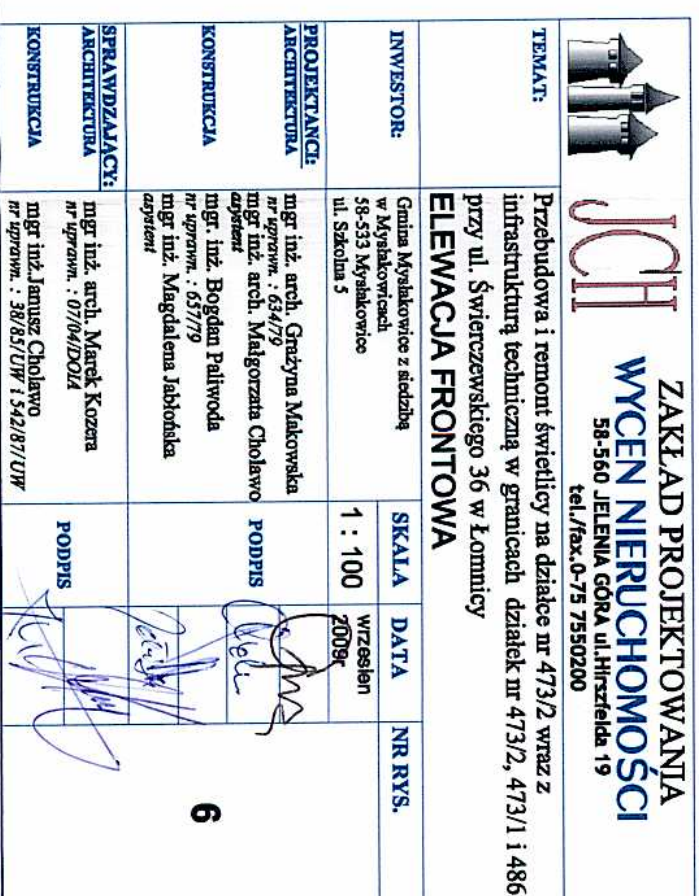 JCH
ZAKŁAD PROJEKTOWANIA
WYCEN NIERUCHOMOŚCI
58-560 JELENIA GÓRA ul.Hirszfelda 19
tel./fax.0-75 7550200
TEMAT:
Przebudowa i remont świetlicy na działce nr 473/2 wraz z
infrastrukturą techniczną w granicach działek nr 473/2, 473/1 i 486
przy ul. Świerczewskiego 36 w Łomnicy
ELEWACJA FRONTOWA
INWESTOR:
Gmina Mysłakowice z siedzibą
w Mysłakowicach
58-533 Mysłakowice
ul. Szkolna 5
SKALA
1 : 100
DATA
wrzesien
2009r
NR RYS.
6
PROJEKTANCI:
ARCHITEKTURA
mgr inż. arch. Grażyna Makowska
nr uprawn. : 634/79
mgr inż. arch. Małgorzata Cholawo
asystent
PODPIS
KONSTRUKCJA
mgr. inż. Bogdan Paliwoda
nr uprawn. : 657/79
mgr inż. Magdalena Jabłońska
asystent
SPRAWDZAJĄCY:
ARCHITEKTURA
mgr inż. arch. Marek Kozera
nr uprawn. : 07/04/DOIA
PODPIS
KONSTRUKCJA
mgr inż.Janusz Cholawo
nr uprawn. : 38/85/UW i 542/87/UW